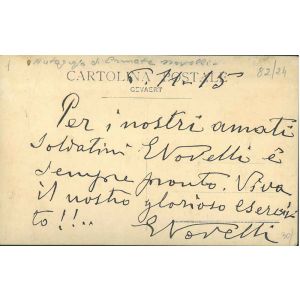 1 Autografo di Ermete Novelli
82/24
CARTOLINA POSTALE
GEVAERT
5. 11-15
Per i nostri amati
soldatini ENovelli è
sempre pronto. Viva
il nostro glorioso eserci-
to!!..
ENovelli